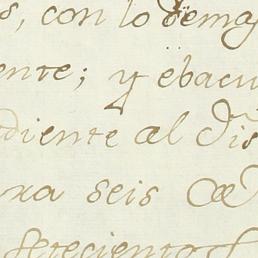 s, con lo demas
ente; y ebacu
diente al Dis
xa seis
setecientos